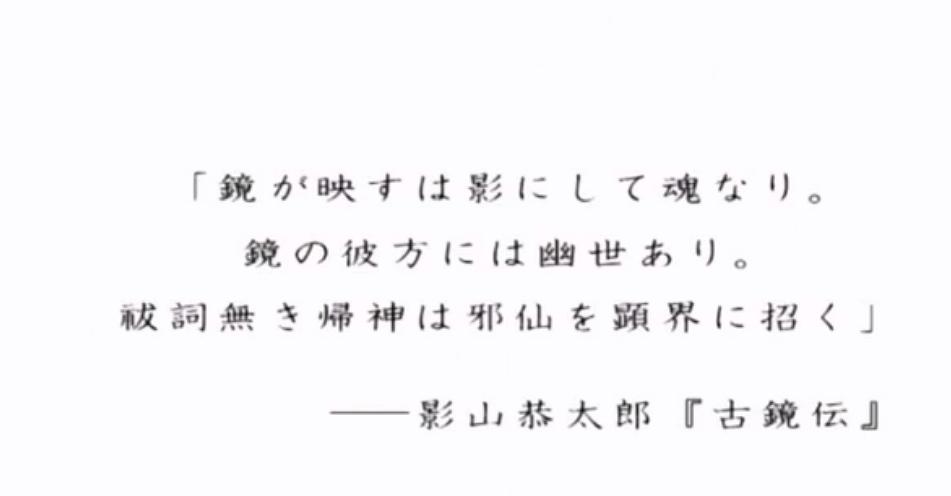 「鏡が映すは影にして魂なり。
鏡の彼方には幽世あり。
祓詞無き帰神は邪仙を顕界に招く」
――影山恭太郎『古鏡伝』